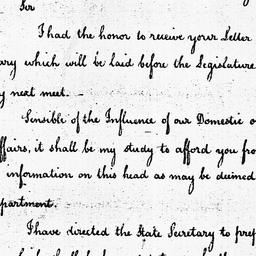 Sir
I had the honor to receive your Letter
ary which will be laid before the Legislature
y next meet. -
Sensible of the Influence of our Domestic o
ffairs, it shall be my study to afford you fro
information on this head as may be deemed
partment.
I have directed the State Secretary to prep